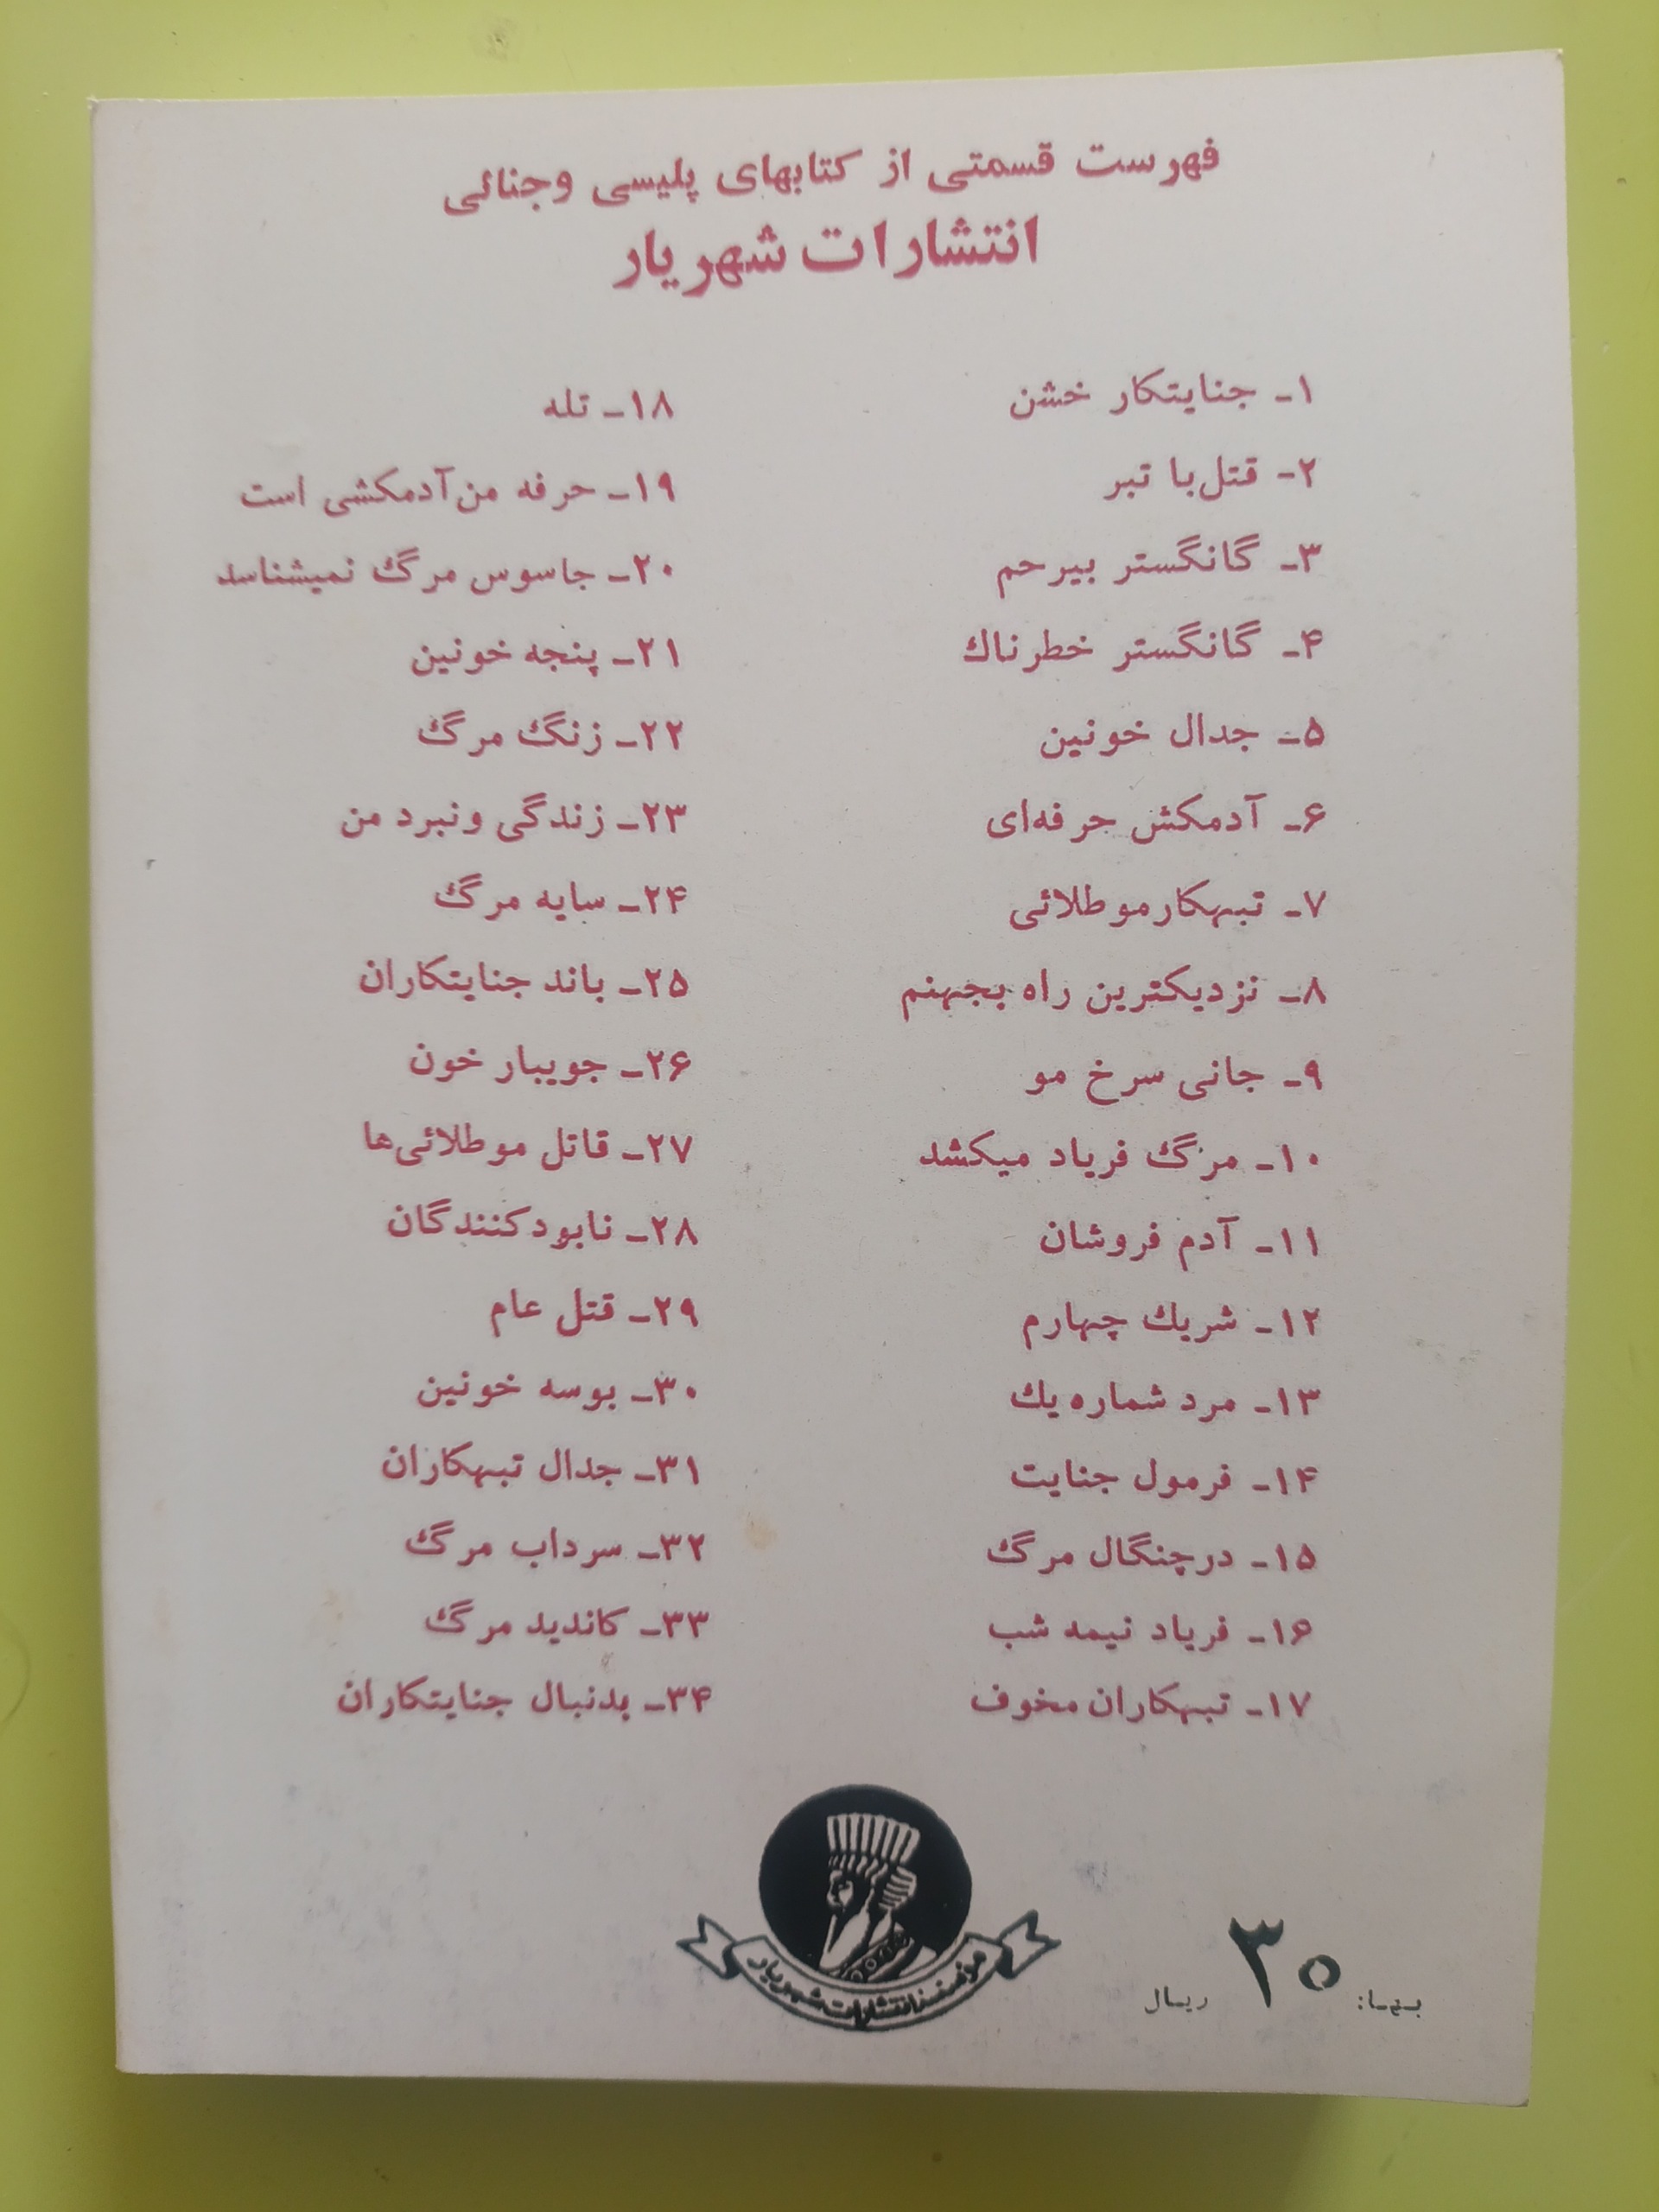 فهرست قسمتی از کتابهای پلیسی وجنائی
انتشارات شهریار
۱ـ جنایتکار خشن
۲- قتل با تبر
۳ـ گانگستر بیرحم
۴ـ گانگستر خطرناك
۵ـ جدال خونین
۶ـ آدمکش حرفه‌ای
۷ـ تبهکار مو طلائی
۸ـ نزدیکترین راه بجهنم
۹ـ جانی سرخ مو
۱۰ـ مرگ فریاد میکشد
۱۱ـ آدم فروشان
۱۲ـ شریك چهارم
۱۳ـ مرد شماره یك
۱۴ـ فرمول جنایت
۱۵ـ درچنگال مرگ
۱۶ـ فریاد نیمه شب
۱۷ـ تبهکاران مخوف
۱۸ـ تله
۱۹ـ حرفه من آدمکشی است
۲۰ـ جاسوس مرگ نمیشناسد
۲۱ـ پنجه خونین
۲۲ـ زنگ مرگ
۲۳ـ زندگی ونبرد من
۲۴ـ سایه مرگ
۲۵ـ باند جنایتکاران
۲۶ـ جویبار خون
۲۷ـ قاتل مو طلائی‌ها
۲۸ـ نابودکنندگان
۲۹ـ قتل عام
۳۰ـ بوسه خونین
۳۱ـ جدال تبهکاران
۳۲ـ سرداب مرگ
۳۳ـ کاندید مرگ
۳۴ـ بدنبال جنایتکاران
مؤسسه انتشارات شهریار
بها: ۳۰ ریال